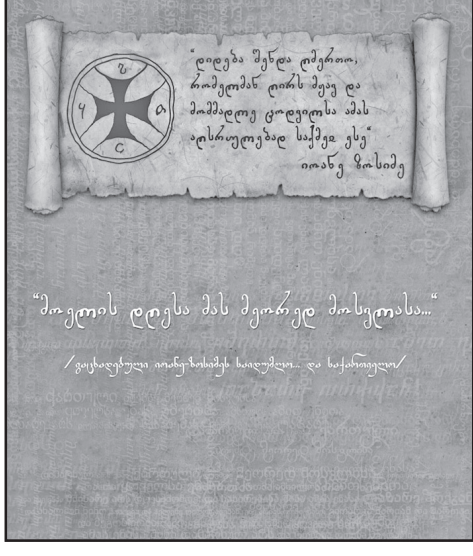 "დიდება შენდა ღმერთო,
რომელმან ღირს მყავ და
მომმადლე ცოდვილსა ამას
აღსრულებად საქმეჲ ესე"
იოანე ზოსიმე
"მოელის დღესა მას მეორედ მოსვლასა..."
/გაცხადებული იოანე-ზოსიმეს საიდუმლო... და საქართველო/